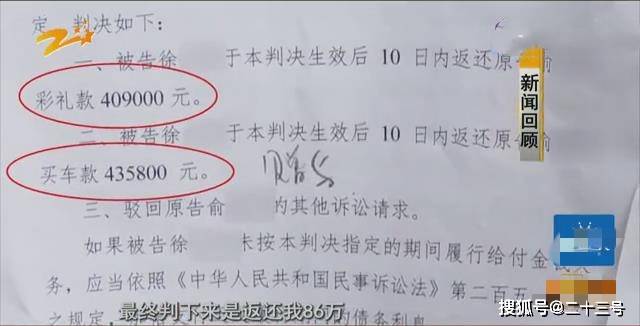 定，判决如下：
一、被告徐 于本判决生效后 10 日内返还原告俞
彩礼款 409000 元。
二、被告徐 于本判决生效后 10 日内返还原告
买车款 435800 元。
三、驳回原告俞 的其他诉讼请求。
如果被告徐 未按本判决指定的期间履行给付金
务，应当依照《中华人民共和国民事诉讼法》第二百五
之规定
的债务利息
新闻回顾
最终判下来是返还我86万
搜狐号@二十三号